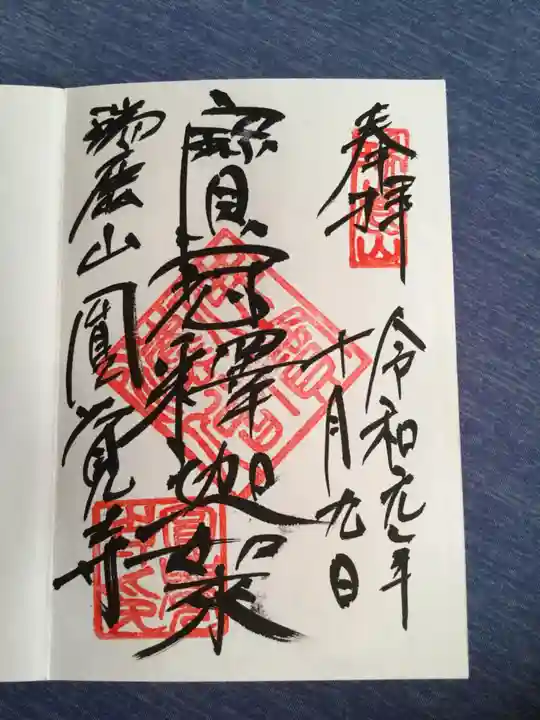 奉拝
令和元年
十月九日
寶冠釋迦如来
瑞鹿山圓覺寺